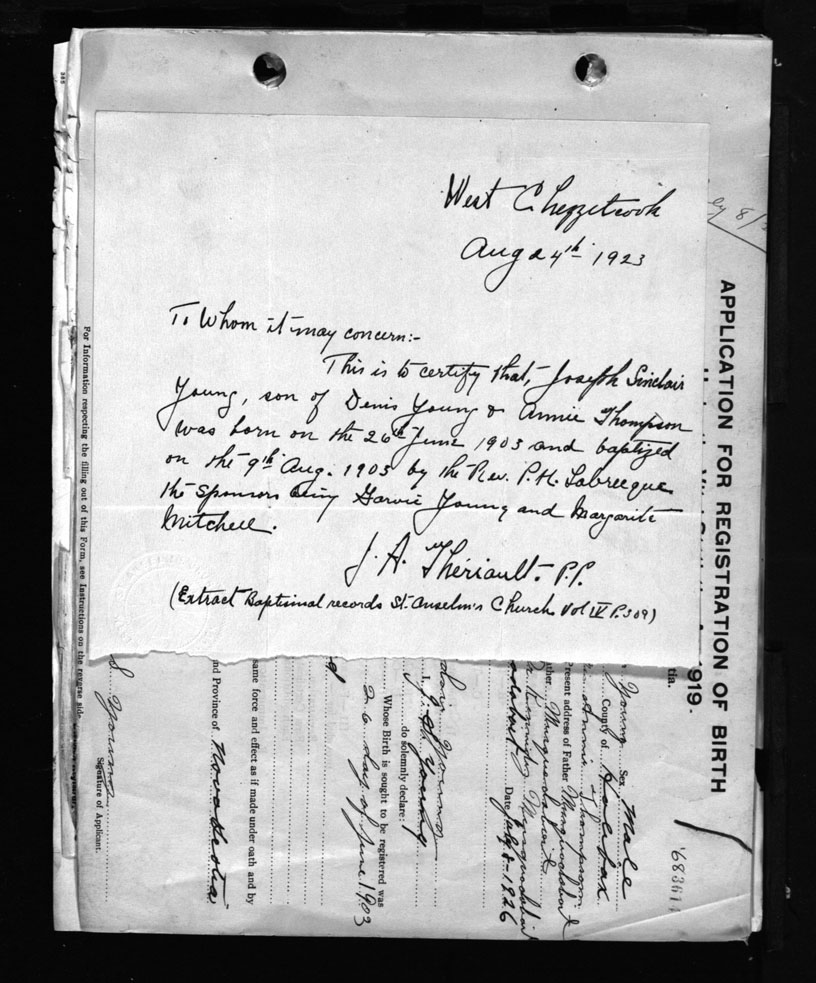 West Chezzetcook
Aug 24th 1923
To Whom it may concern:-
This is to certify that, Joseph Sinclair
Young, son of Denis Young & Annie Thompson
was born on the 26th June 1903 and baptized
on the 9th Aug. 1903 by the Rev. P.H. Labrecque
the sponsors being Young and Margarite
Mitchell.
J. A. Thériault. P.P.
(Extract Baptismal records St. Anselm's Church Vol IV P. 309)
APPLICATION FOR REGISTRATION OF BIRTH
1919.
683611
Young Sex Male
County of Halifax
Annie Thompson
Present address of Father Musquodoboit
Musquodoboit
Date July 8-1926
I, Young
do solemnly declare:
Whose Birth is sought to be registered was
26 day of June 1903
same force and effect as if made under oath and by
nd Province of Nova Scotia
Young
Signature of Applicant.
For Information respecting the filling out of this Form, see Instructions on the reverse side.